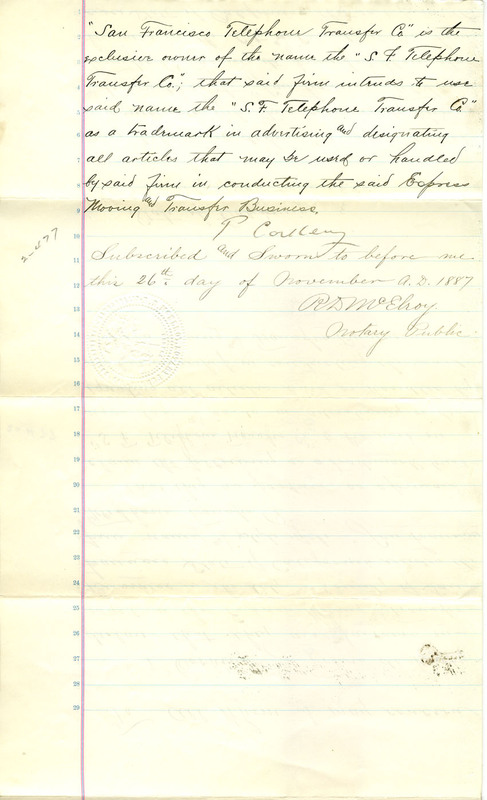 "San Francisco Telephone Transfer Co" is the
exclusive owner of the name the "S. F. Telephone
Transfer Co."; that said firm intends to use
said name the "S.F. Telephone Transfer Co."
as a trademark in advertising and designating
all articles that may be used or handled
by said firm in conducting the said Express
Moving and Transfer Business.
P
Subscribed and Sworn to before me
this 26th day of November A.D. 1887
R D McElroy.
Notary Public.
2-477
1
2
3
4
5
6
7
8
9
10
11
12
13
14
15
16
17
18
19
20
21
22
23
24
25
26
27
28
29